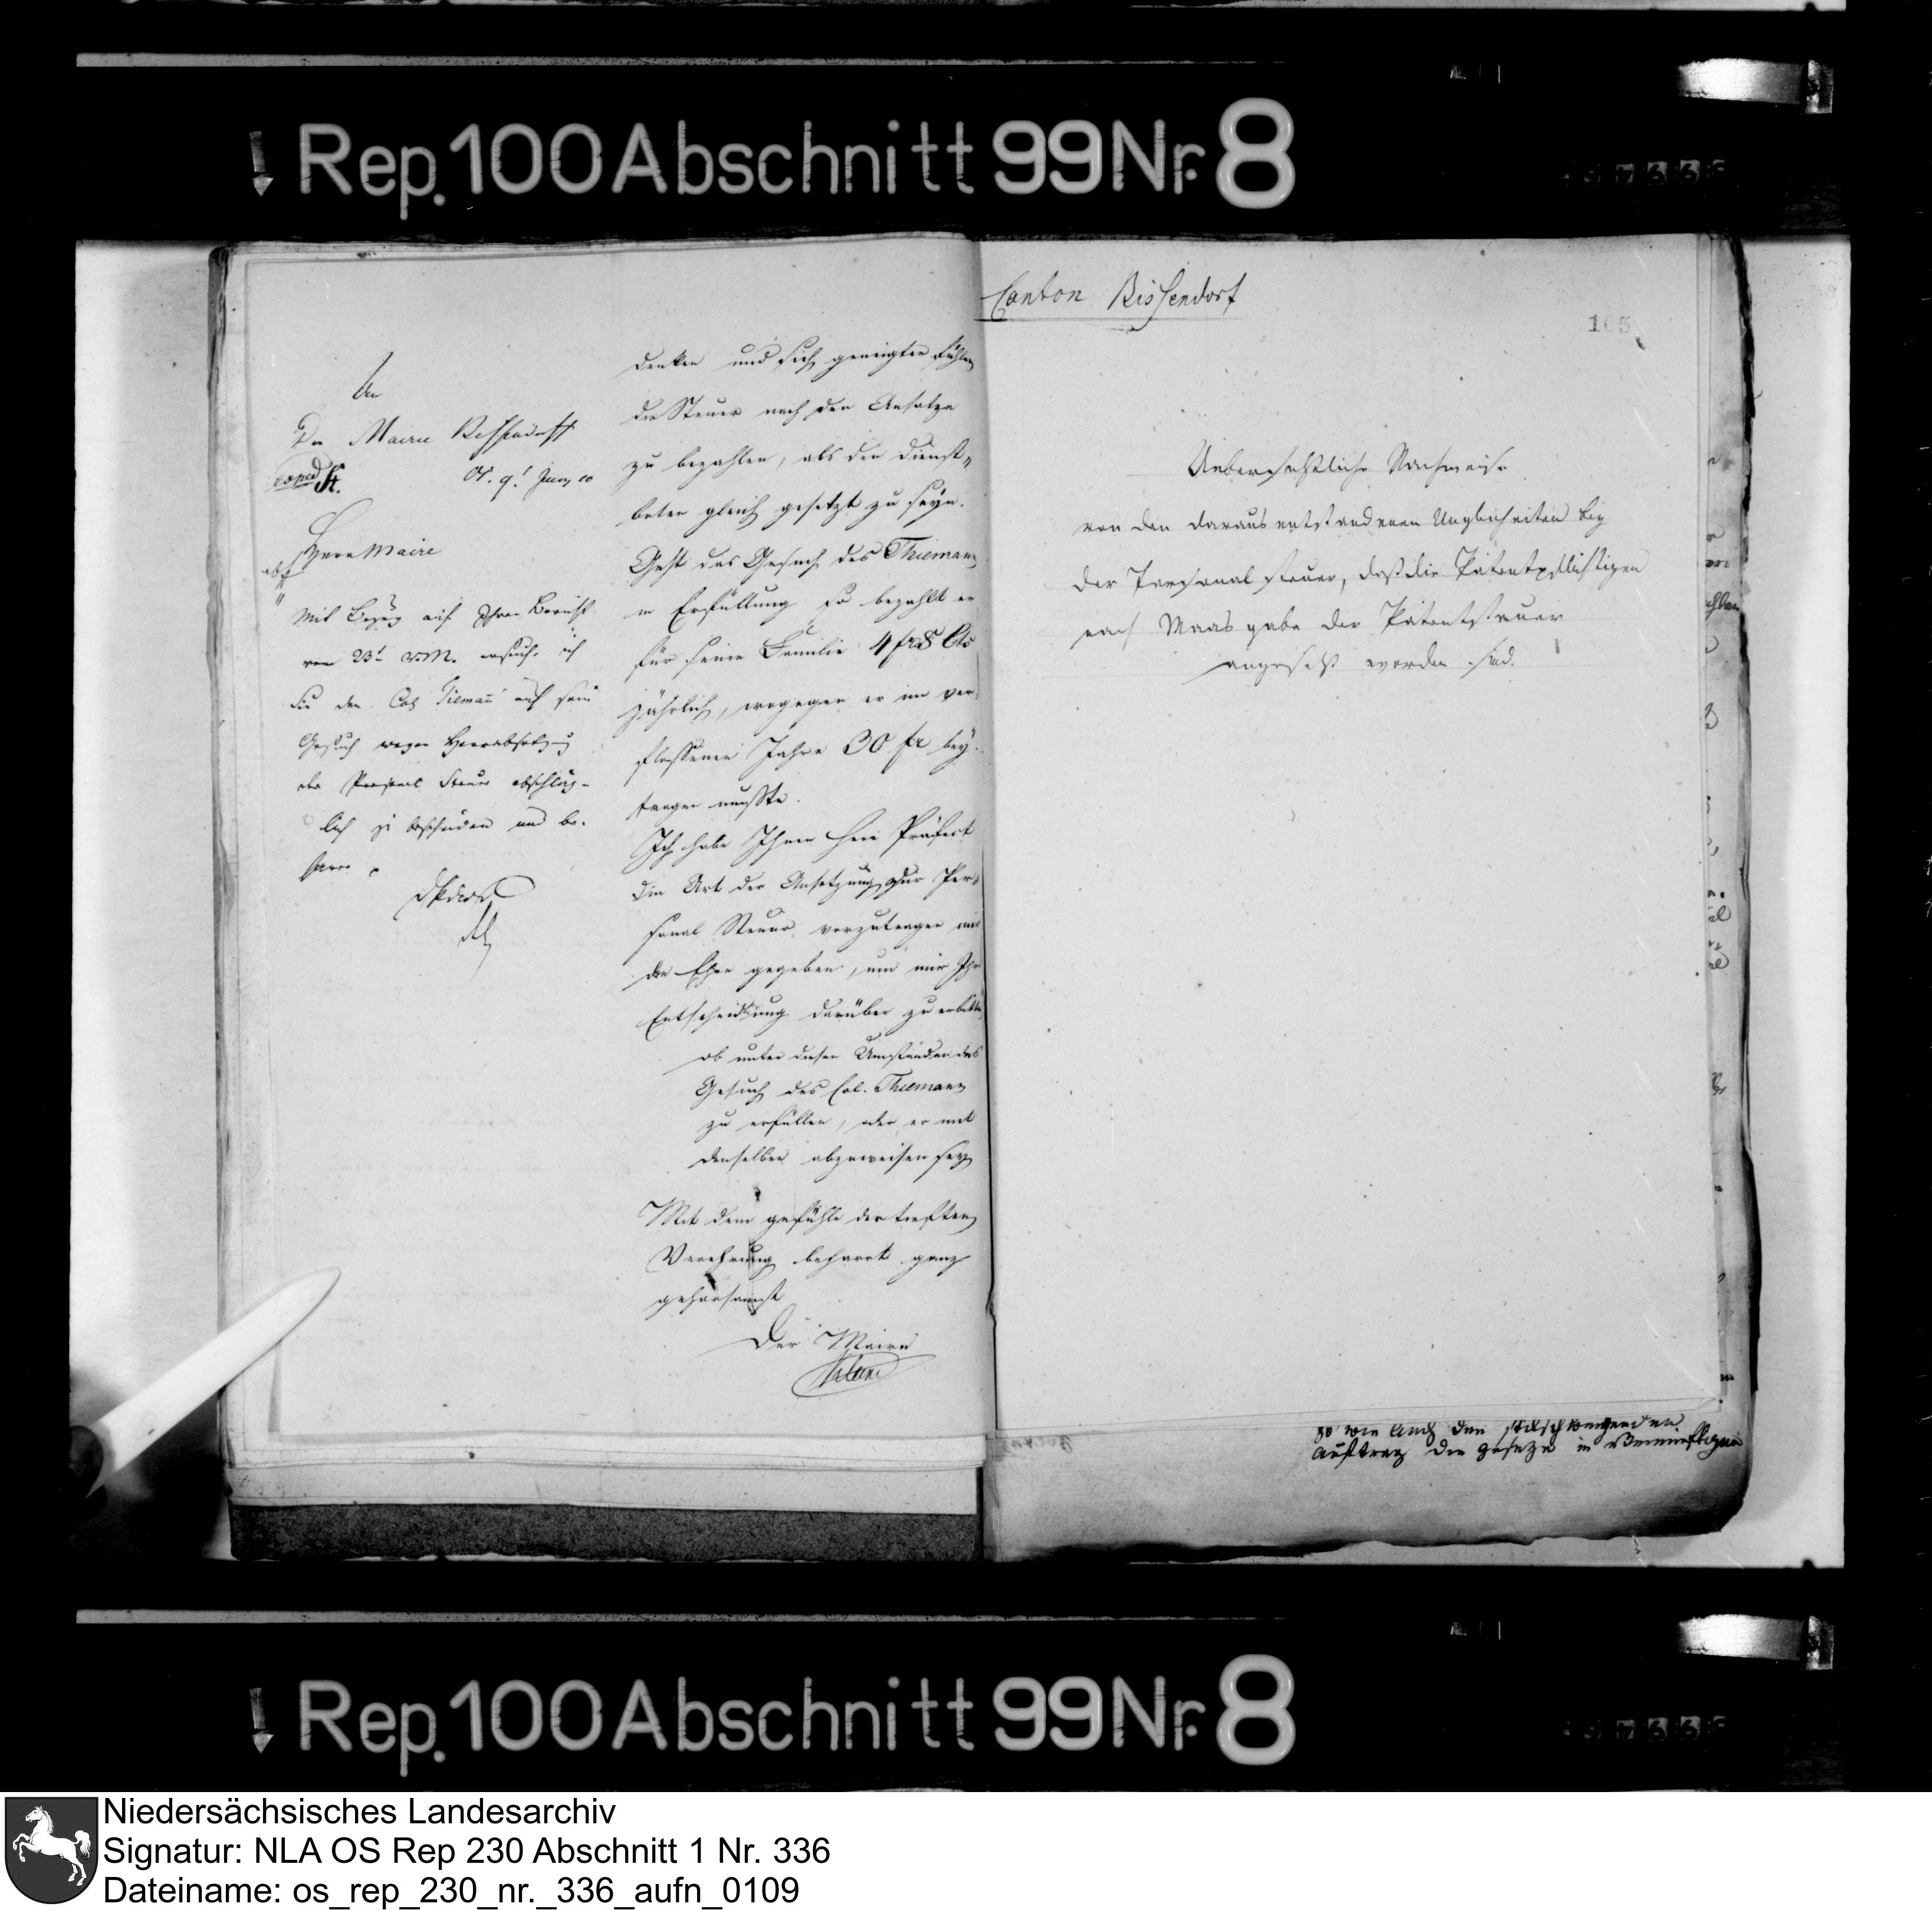 Rep. 100 Abschnitt 99 Nr. 8
An
Den Maire Bissendorff
exped
Os. 9t Juny 10
Herrn Maire
Mit Bezug auf Ihren Bericht
vom 23t v. M. ersuche ich
Sie den Col Tiemann auf sein
Gesuch wegen Herabsetzung
der Personal Steuer abschläg-
lich zu bescheiden und be-
denken und sich geneigter fühlen
die Steuer nach den Ansatze
zu bezahlen, als den Dienst-
boten gleich gesetzt zu seyn.
Geht das Gesuch des Thiemann
in Erfüllung so bezahlt er
für seine Familie 4 frcs
jährlich, wogegen er im ver-
flossenen Jahre 30 fr bey-
tragen mußte.
Ich habe Ihnen Herr Präfect
die Art der Ansetzung zur Per-
sonal Steuer vorzutragen mir
die Ehre gegeben, um mir Ihre
Entscheidung darüber zu erbitten
ob unter diesen Umständen das
Gesuch des Col. Thiemann
zu erfüllen, oder er mit
demselben abzuweisen sey
Mit dem gefühle der tiefsten
Verehrung beharrt ganz
gehorsamst
Der Maire
Canton Bissendorf
105
Uebersichtliche Nachweise
von den daraus entstandenen Ungleichheiten bey
der Personal steuer, daß die Patentpflichtigen
nach Maasgabe der Patentsteuer
angesetzt worden sind.
so wie auch den stillschweigenden
Auftrag die gesetze in
Rep. 100 Abschnitt 99 Nr. 8
Niedersächsisches Landesarchiv
Signatur: NLA OS Rep 230 Abschnitt 1 Nr. 336
Dateiname: os_rep_230_nr._336_aufn_0109